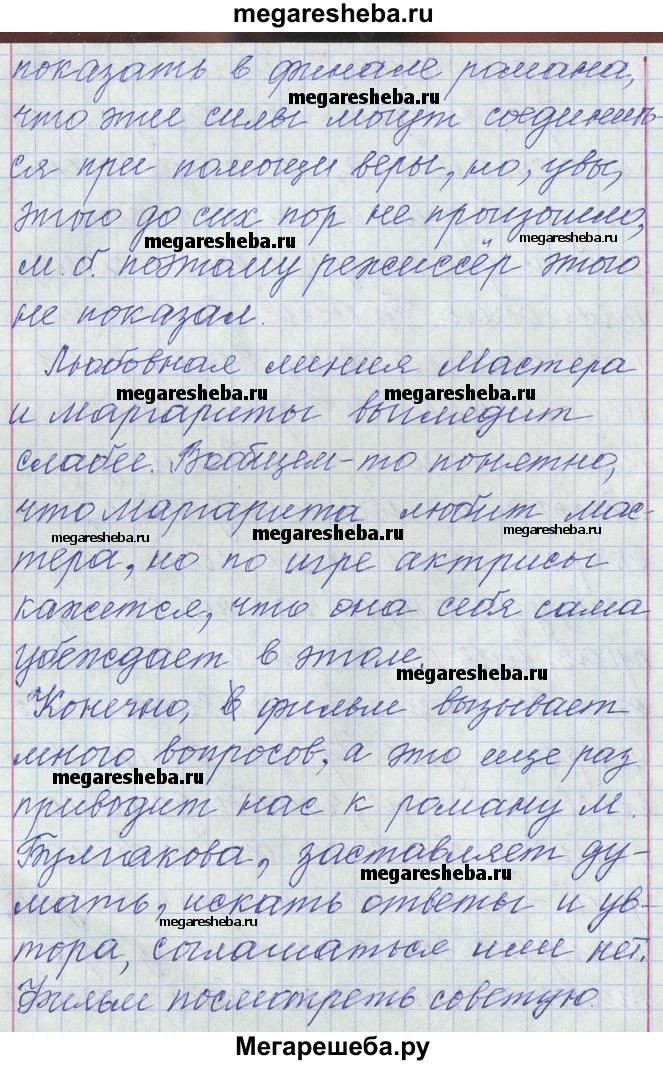 megaresheba.ru
показать в финале романа,
megaresheba.ru
что эти силы могут соединить-
ся при помощи веры, но, увы,
этого до сих пор не произошло,
megaresheba.ru megaresheba.ru
м. б. поэтому режиссёр этого
не показал.
Любовная линия Мастера
megaresheba.ru megaresheba.ru
и Маргариты выглядит
слабее. Вообщем-то понятно,
что Маргарита любит мас-
megaresheba.ru megaresheba.ru megaresheba.ru
тера, но по игре актрисы
кажется, что она себя сама
убеждает в этом.
megaresheba.ru
Конечно, в фильм вызывает
много вопросов, а это еще раз
megaresheba.ru
приводит нас к роману М.
Булгакова, заставляет ду-
megaresheba.ru
мать, искать ответы и ув-
megaresheba.ru
тора, соглашаться или нет.
megaresheba.ru
Фильм посмотреть советую.
Мегарешеба.ру